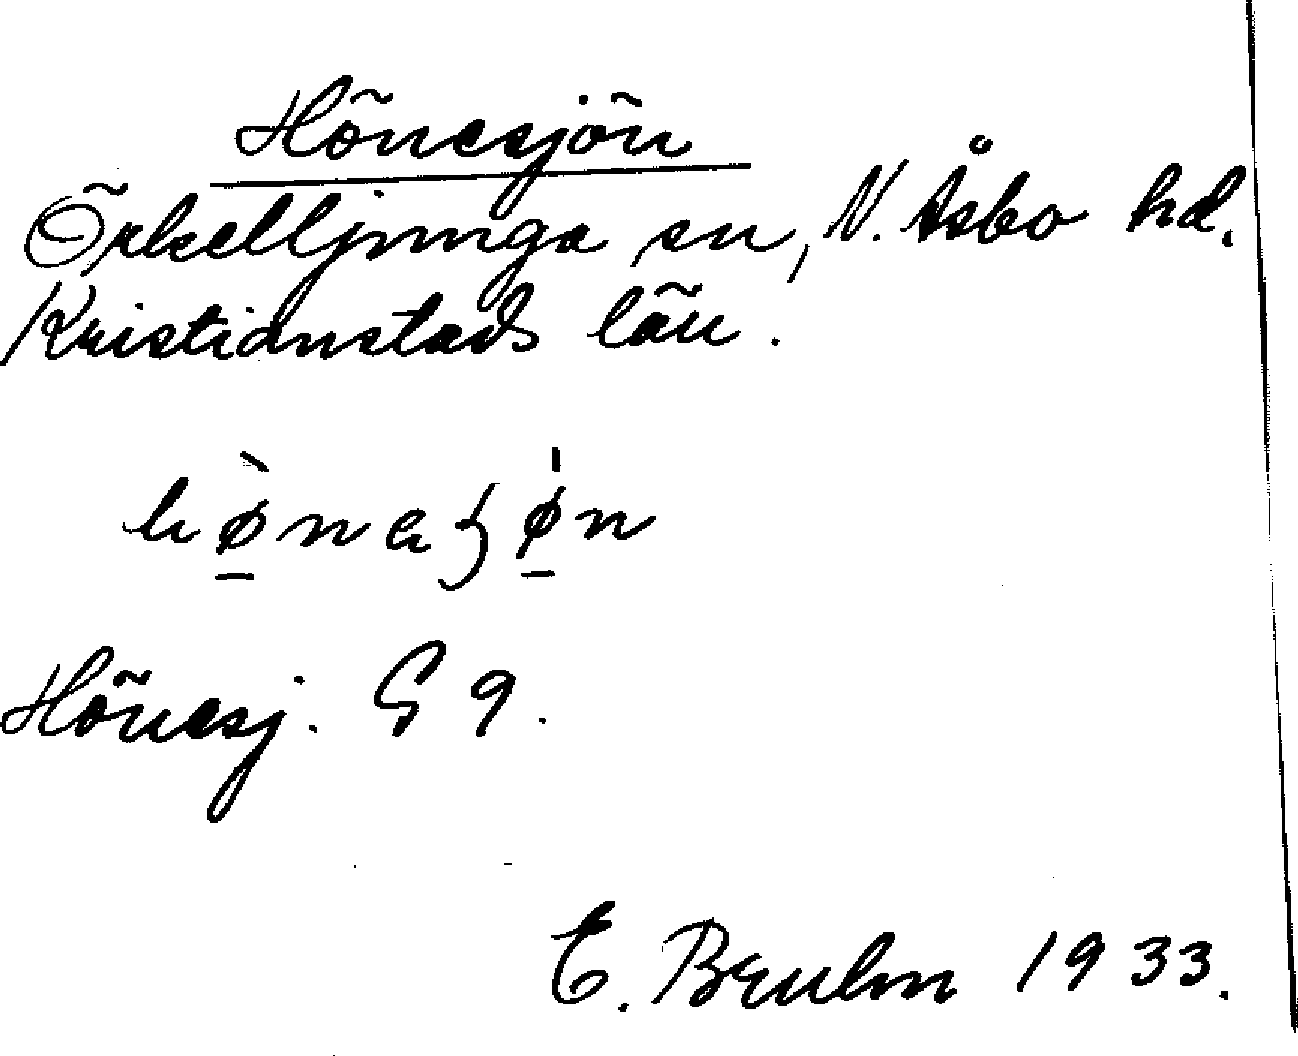 Hönesjön
Örkelljunga sn, N. Åsbo hd.
Kristianstads län.
Hönesj. G 9.
E. Bruhn 1933.